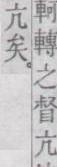 軻轉之督亢
亢矣。